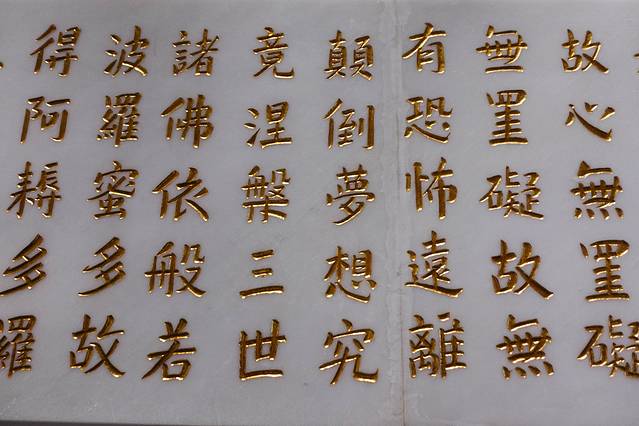 故心無罣礙
無罣礙故無
有恐怖遠離
顛倒夢想究
竟涅槃三世
諸佛依般若
波羅蜜多故
得阿耨多羅